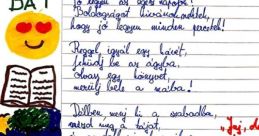 DAT
Jó legyen az egész napotok!
Boldogságot kívánok nektek,
hogy jó legyen minden percetek!
Reggel igyál egy kávét,
feküdj be az ágyba,
olvass egy könyvet,
merülj bele a szóba!
Délben menj ki a szabadba,
nézd meg a tájat,
"Jaj, de